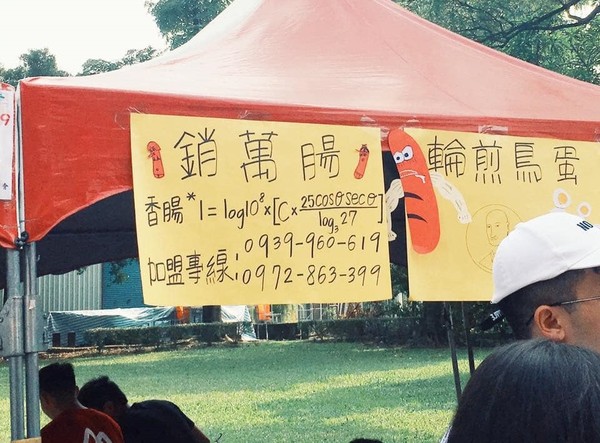 銷萬腸
香腸*1=log10⁸×[C×25cosθsecθ/log₃27]
:0939-960-619
加盟專線:0972-863-399
輪煎鳥蛋
NO